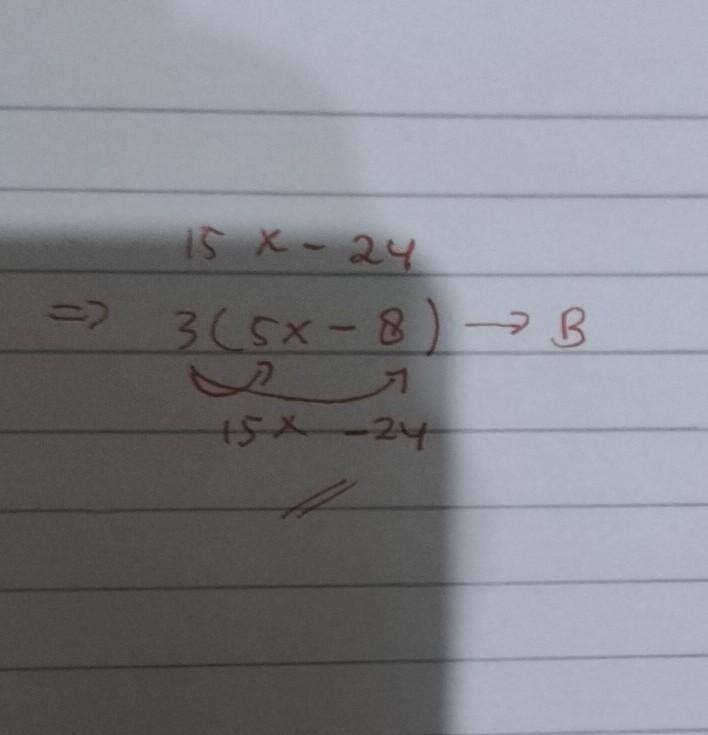 15 x - 24
=> 3(5x - 8) → B
15x - 24